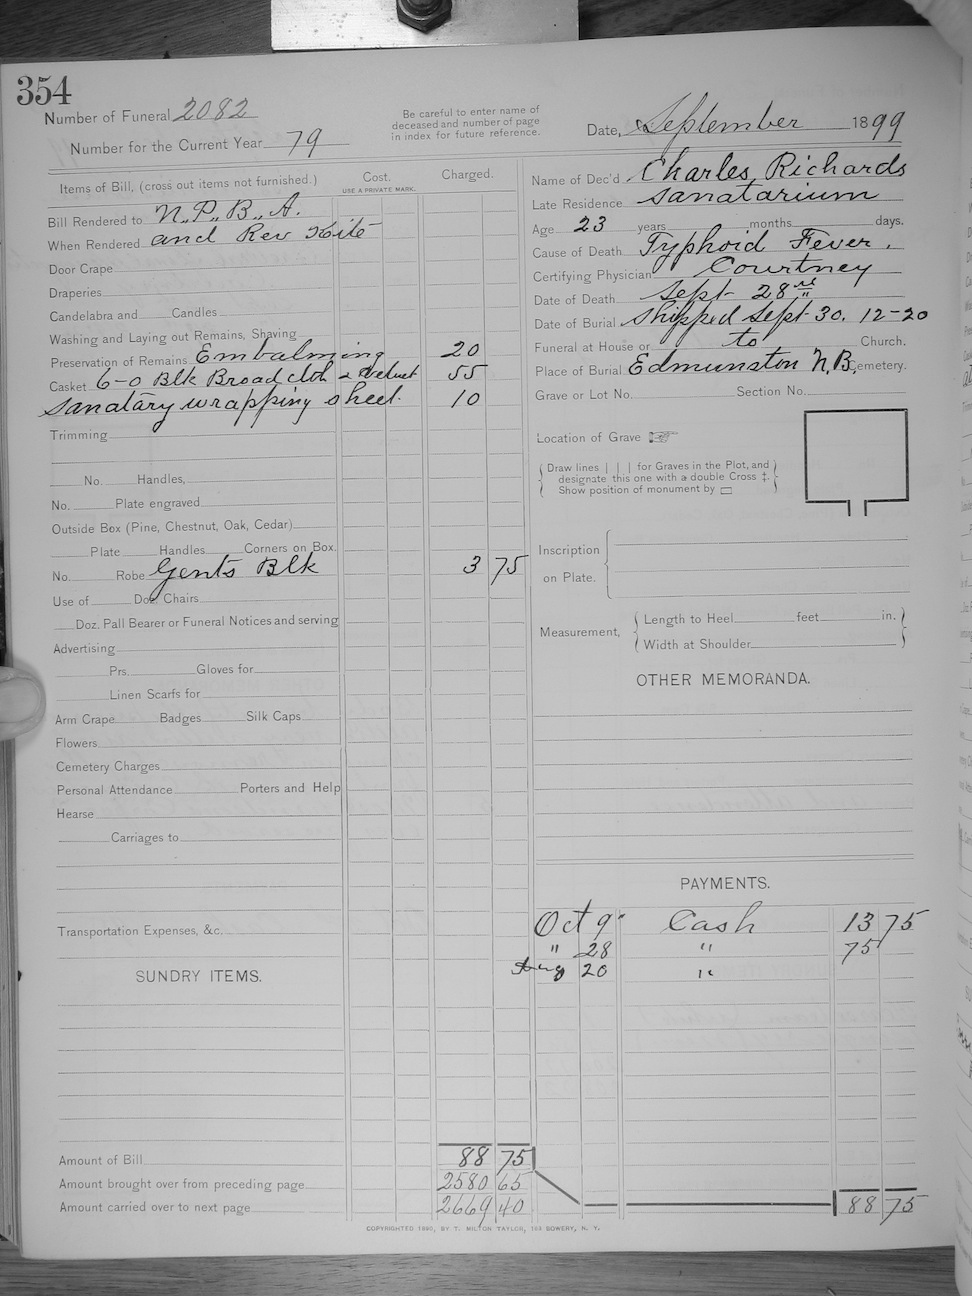 354
Number of Funeral 2082
Be careful to enter name of
deceased and number of page
in index for future reference.
Date, September 1899
Number for the Current Year 79
Items of Bill, (cross out items not furnished.)
Cost.
USE A PRIVATE MARK.
Charged.
Bill Rendered to N.P.B.A.
When Rendered and Rev
Door Crape
Draperies
Candelabra and Candles
Washing and Laying out Remains, Shaving
Preservation of Remains Embalming 20
Casket 6-0 Blk Broadcloth & Velvet 55
Sanatary wrapping sheet. 10
Trimming
No. Handles,
No. Plate engraved
Outside Box (Pine, Chestnut, Oak, Cedar)
Plate Handles Corners on Box.
No. Robe Gents Blk 3 75
Use of Doz. Chairs
Doz. Pall Bearer or Funeral Notices and serving
Advertising
Prs. Gloves for
Linen Scarfs for
Arm Crape Badges Silk Caps
Flowers
Cemetery Charges
Personal Attendance Porters and Help
Hearse
Carriages to
Transportation Expenses, &c.
SUNDRY ITEMS.
Amount of Bill 88 75
Amount brought over from preceding page 2580 65
Amount carried over to next page 2669 40
Name of Dec'd Charles Richards
Late Residence Sanatarium
Age 23 years months days.
Cause of Death Typhoid Fever.
Certifying Physician Courtney
Date of Death Sept 28
Date of Burial Shipped Sept 30. 12-20
Funeral at House or to Church.
Place of Burial Edmunston N.B. Cemetery.
Grave or Lot No. Section No.
Location of Grave
Draw lines | | | for Graves in the Plot, and
designate this one with a double Cross ‡.
Show position of monument by ▭
Inscription
on Plate.
Measurement,
Length to Heel feet in.
Width at Shoulder
OTHER MEMORANDA.
PAYMENTS.
Oct 9 Cash 13 75
" 28 " 75
Aug 20 "
88 75
COPYRIGHTED 1890, BY T. MILTON TAYLOR, 163 BOWERY, N. Y.